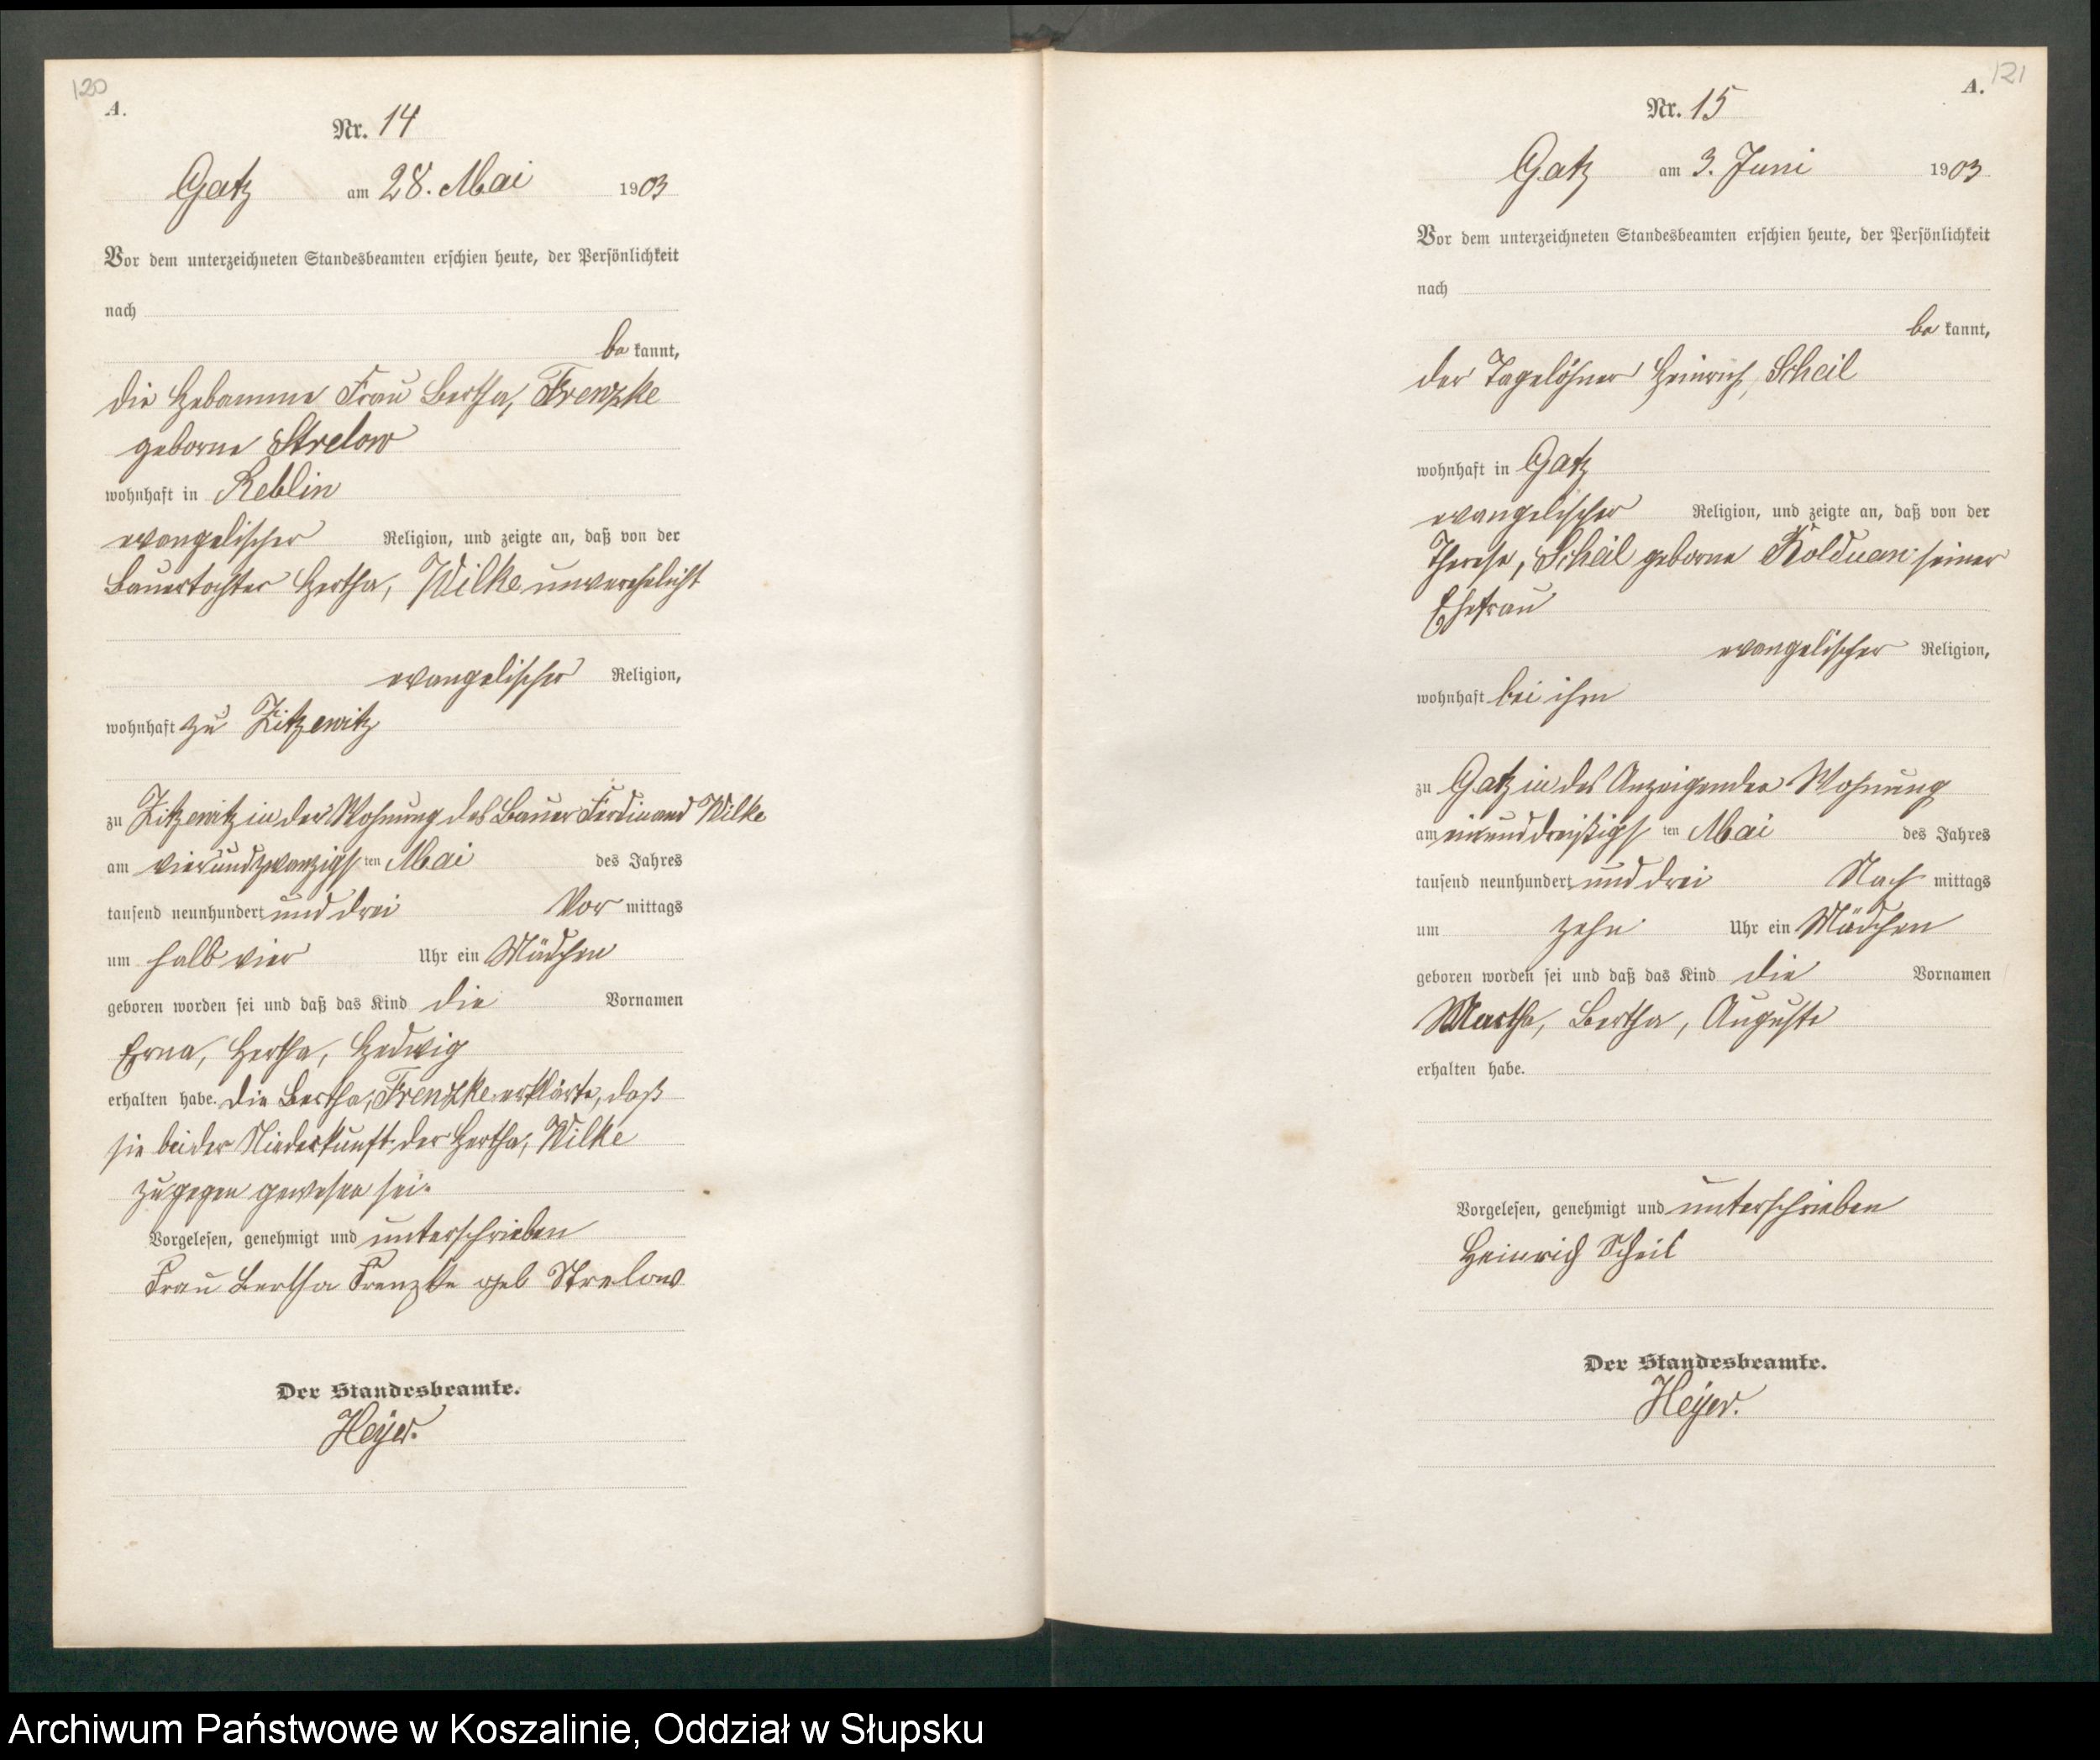 120
A.
Nr. 14
Gatz am 28. Mai 1903
Vor dem unterzeichneten Standesbeamten erschien heute, der Persönlichkeit
nach
be kannt,
die Hebamme Frau Bertha, Frenzke
geborne Strelow
wohnhaft in Reblin
evangelischer Religion, und zeigte an, daß von der
Bauertochter Hertha, Wilke unverehelicht
evangelischer Religion,
wohnhaft zu Zitzewitz
zu Zitzewitz in der Wohnung des Bauer Ferdinand Wilke
am vierundzwanzigsten Mai des Jahres
tausend neunhundert und drei Vor mittags
um halb vier Uhr ein Mädchen
geboren worden sei und daß das Kind die Vornamen
Erna, Hertha, Hedwig
erhalten habe. Die Bertha, Frenzke erklärte, daß
sie bei der Niederkunft der Hertha, Wilke
zugegen gewesen sei.
Vorgelesen, genehmigt und unterschrieben
Frau Bertha Frenzke geb Strelow
Der Standesbeamte.
Heyer.
121
A.
Nr. 15
Gatz am 3. Juni 1903
Vor dem unterzeichneten Standesbeamten erschien heute, der Persönlichkeit
nach
be kannt,
der Tagelöhner Heinrich, Scheil
wohnhaft in Gatz
evangelischer Religion, und zeigte an, daß von der
Therese, Scheil geborne Kolduan seiner
Ehefrau
evangelischer Religion,
wohnhaft bei ihm
zu Gatz in des Anzeigenden Wohnung
am einunddreißigsten Mai des Jahres
tausend neunhundert und drei Nach mittags
um zehn Uhr ein Mädchen
geboren worden sei und daß das Kind die Vornamen
Martha, Bertha, Auguste
erhalten habe.
Vorgelesen, genehmigt und unterschrieben
Heinrich Scheil
Der Standesbeamte.
Heyer.
Archiwum Państwowe w Koszalinie, Oddział w Słupsku